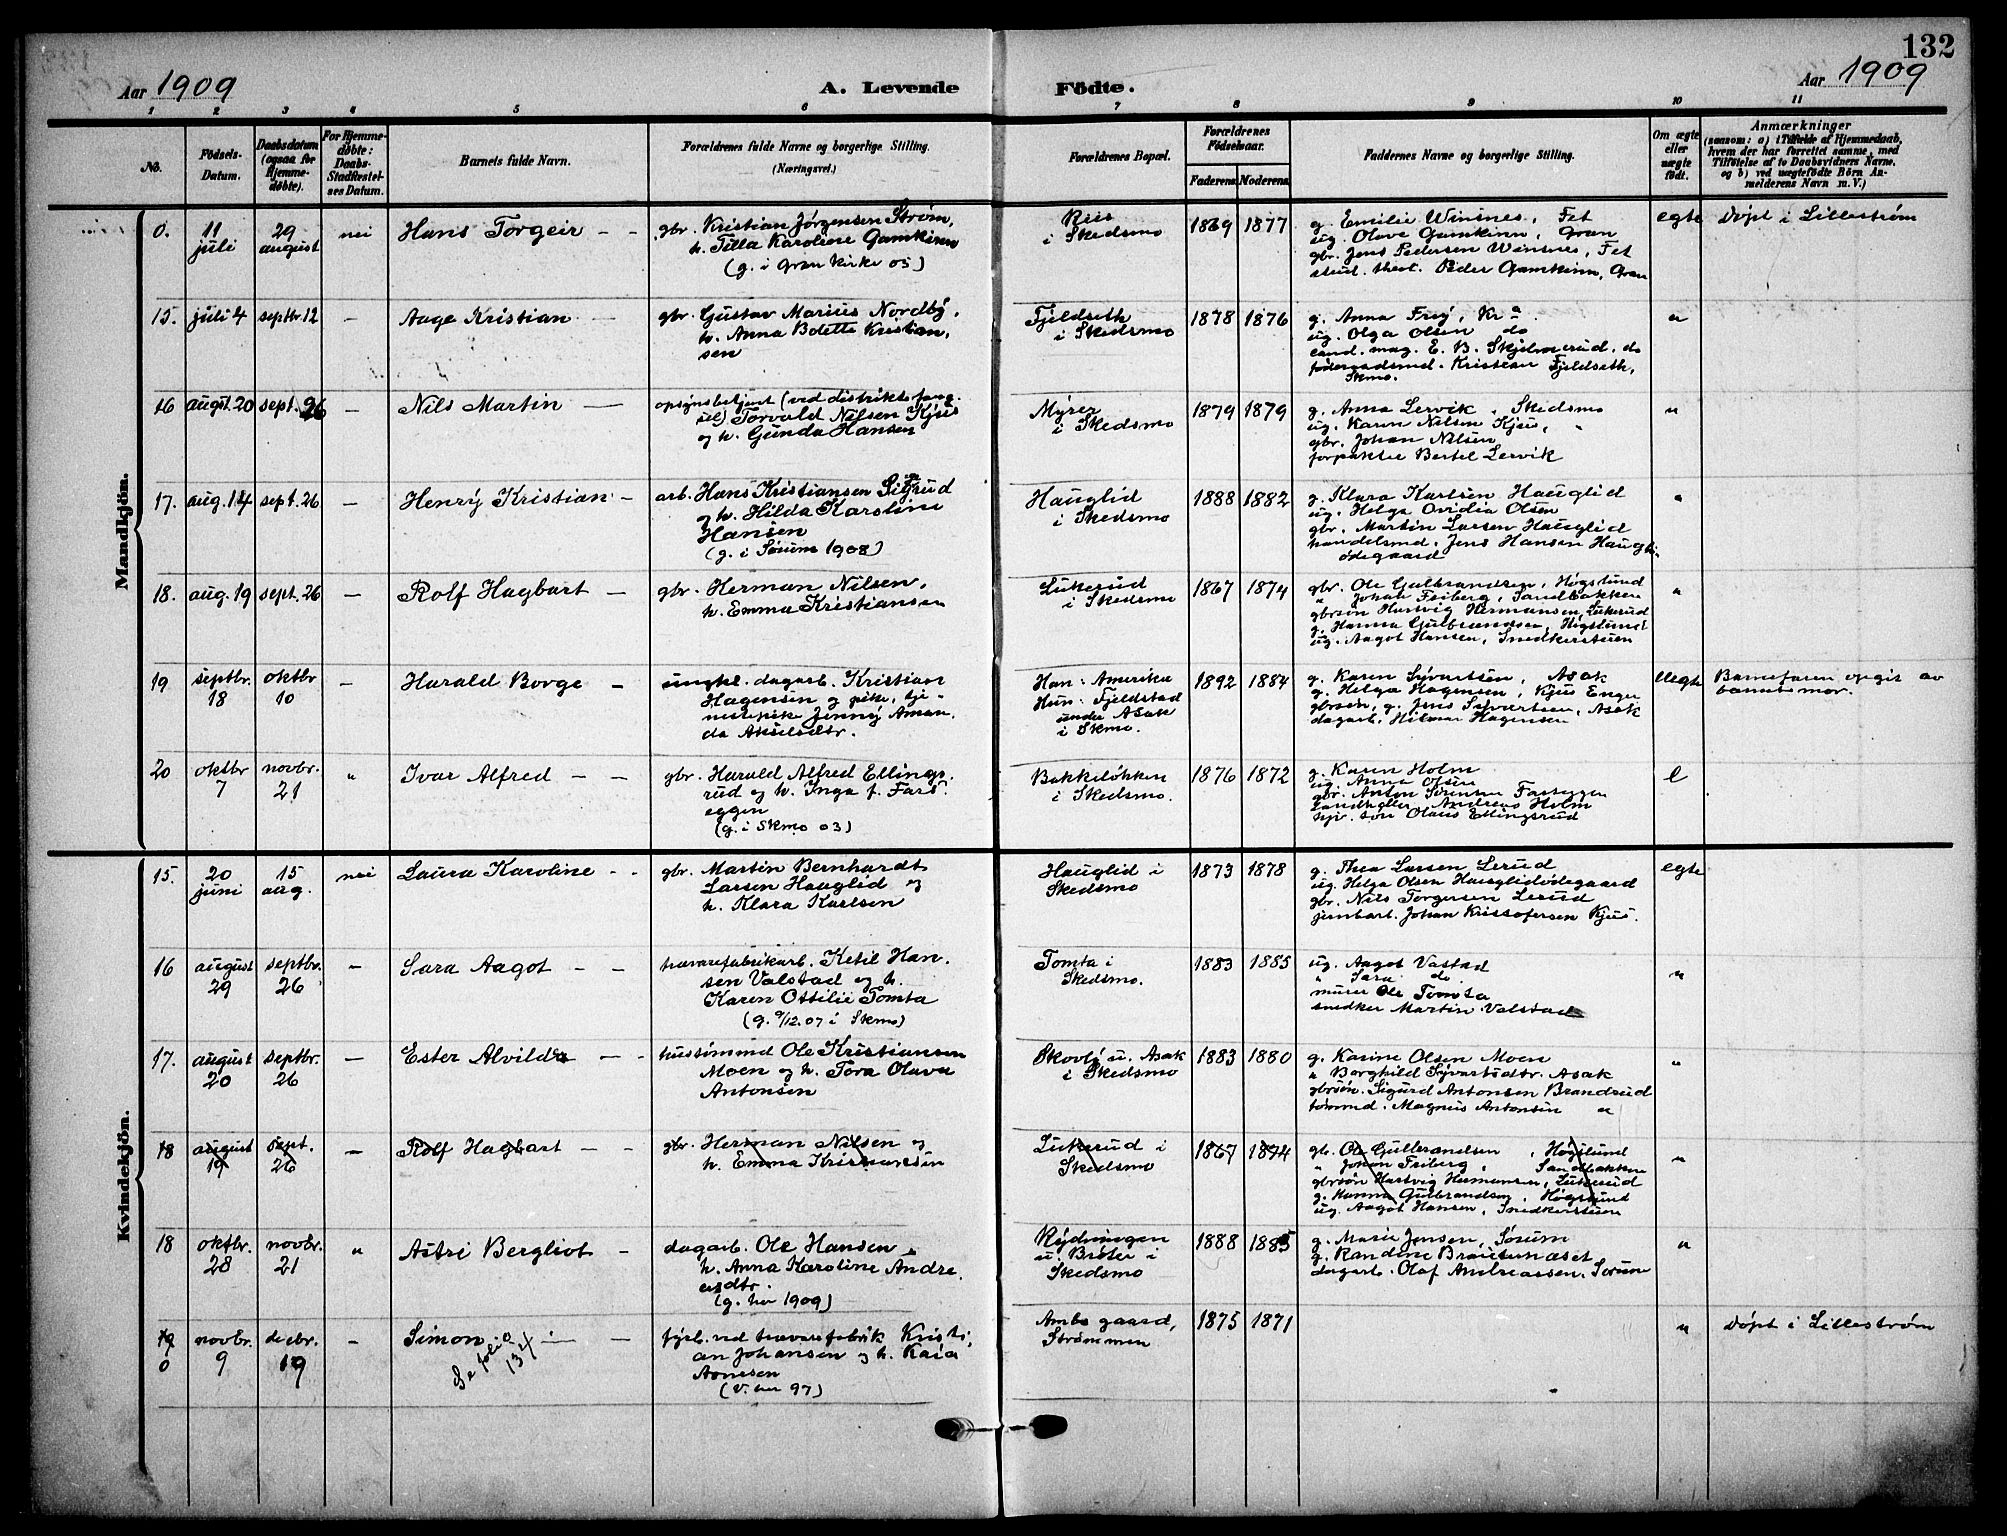 132
Aar 1909
A. Levende Födte.
Aar 1909
1 2 3 4 5 6 7 8 9 10 11
No.
Födsels-Datum.
Daabsdatum (ogsaa for Hjemme-døbte).
For Hjemme-døbte: Daabs-Stadfæstel-ses Datum.
Barnets fulde Navn.
Forældrenes fulde Navne og borgerlige Stilling.
(Næringsvei.)
Forældrenes Bopæl.
Forældrenes Födselsaar.
Faderens. Moderens.
Faddernes Navne og borgerlige Stilling.
Om ægte eller uægte födt.
Anmærkninger
(saasom: a) i Tilfælde af Hjemmedaab, hvem der har forrettet samme, med Tilföielse af to Daabsvidners Navne, og b) ved uægtefödte Börn Anmelderens Navn m. V.)
Mandkjön.
0. 11 juli 29 august nei Hans Torgeir — —
gbr. Kristian Jørgensen Strøm,
h. Tilla Karoline Gamkinn
(g. i Gran kirke 05)
Riis
i Skedsmo
1869 1877
g. Emilie Winsnes, Fet
ug. Olave Gamkinn, Gran
gbr. Jens Pedersen Winsnes, Fet
stud. theol. Peder Gamkinn, Gran
egte Døpt i Lillestrøm
15. juli 4 septbr 12 — Aage Kristian —
gbr. Gustav Marius Nordby,
h. Anna Bolette Kristian,
sen
Fjeldseth
i Skedsmo
1878 1876
g. Anna Frey, Kr a
ug. Olga Olsen do
cand. mag. E. B. Skjelmerud. do
føderaadsmd. Kristian Fjeldseth,
Skmo.
"
16 augst. 20 sept. 26 — Nils Martin —
opsynsbetjent (ved distriktsfæng-
sel) Torvald Nilsen Kjus
og h. Gunda Hansen
Myrer
i Skedsmo
1879 1879
g. Anna Lervik, Skedsmo
ug. Karen Nilsen Kjus, "
gbr. Johan Nilsen
forpakter Bertel Lervik
"
17. aug. 14 sept. 26 — Henry Kristian —
arb. Hans Kristiansen Sigrud
og h. Hilda Karoline
Hansen
(g. i Sørum 1908)
Hauglid
i Skedsmo
1888 1882
g. Klara Karlsen Hauglid
ug. Helga Ovidia Olsen
gbr. Martin Larsen Hauglid
handelsmd. Jens Hansen Haugli-
ødegaard
"
18. aug. 19 sept. 26 — Rolf Hagbart —
gbr. Herman Nilsen,
h. Emma Kristiansen
Lukerud
i Skedsmo
1867 1874
gbr. Ole Gulbrandsen, Høgslund
" Johan Friberg, Sandbakken
gbrsøn Hartvig Hermansen, Lukerud
g. Hanna Gulbrandsen, Høgslund
ug. Aagot Hansen, Snedkerstuen
"
19 septbr. 18 oktbr 10 — Harald Borge —
ungkl. dagarb. Kristian
Hagensen og pike, tje-
nestepike Jenny Aman,
da Akselsdtr.
Han: Amerika
Hun: Fjeldstad
under Asak
i Skmo.
1892 1884
g. Karen Syvertsen, Asak
g. Helga Hagensen, Kjus Enger
gbrsøn, g. Jens Syvertsen, Asak
dagarb. Hilmar Hagensen
uegte Barnefaren opgit av
barnets mor.
20 oktbr 7 novbr. 21 " Ivar Alfred — —
gbr. Harald Alfred Ellings,
rud og h. Inga f. Fars-
eggen
(g. i Skmo 03)
Bekkeløkken
i Skedsmo.
1876 1872
g. Karen Holm
ug. Anna Olsen
gbr. Anton Sørensen Farseggen
Landhandler Andreas Holm
hjv. søn Olaus Ellingsrud
e
Kvindekjön.
15. 20 juni 15 aug. nei Laura Karoline — —
gbr. Martin Bernhardt
Larsen Hauglid og
h. Klara Karlsen
Hauglid i
Skedsmo
1873 1878
g. Thea Larsen Lerud
ug. Helga Olsen Hauglidødegaard
gbr. Nils Torgersen Lerud
jernbarb. Johan Kristofersen Kjus.
egte
16 august 29 septbr. 26 — Sara Aagot — —
trævarefabrikarb. Ketil Han-
sen Valstad og h.
Karen Ottilie Tomta
(g. 9/12.07 i Skmo)
Tomta i
Skedsmo.
1883 1885
ug. Aagot Vastad
" Sara do
murer Ole Tomta
snedker Martin Valstad
"
17. august 20 septbr. 26 — Ester Alvilda — —
hustømmd Ole Kristiansen
Moen og h. Tora Olava
Antonsen
Skovly u. Asak
i Skedsmo
1883 1880
g. Karine Olsen Moen
" Borghild Syvertsdtr. Asak
gbrsøn. Sigurd Antonsen Brandsrud
tømmd. Magnus Antonsen "
"
18 august 19 sept. 26 — Rolf Hagbart — —
gbr. Herman Nilsen og
h. Emma Kristiansen
Lukerud i
Skedsmo
1867 1874
gb. Ole Gulbrandsen, Høgslund
" Johan Friberg, Sandbakken
gbrsøn Hartvig Hermansen, Lukerud
g. Hanna Gulbrandsen, Høgslund
ug. Aagot Hansen, Snedkerstuen
"
18 oktbr. 28 novbr. 21 " Astri Bergliot —
dagarb. Ole Hansen,
h. Anna Karoline Andre,
asdtr.
(g. her 1909)
Rydningen
u. Bråter i
Skedsmo
1888 1885
g. Marie Jensen, Sørum
g. Randine Braatenæset
dagarb. Olaf Andreassen, Sørum
"
19 0 novbr. 9 decbr. 19 — Simon — —
Se folio 134
fyrb. ved trævarefabrik Kristi,
an Johansen og h. Kaia
Arnesen
(V. her 97)
Ambs gaard,
Strømmen
1875 1871
" Døpt i Lillestrøm